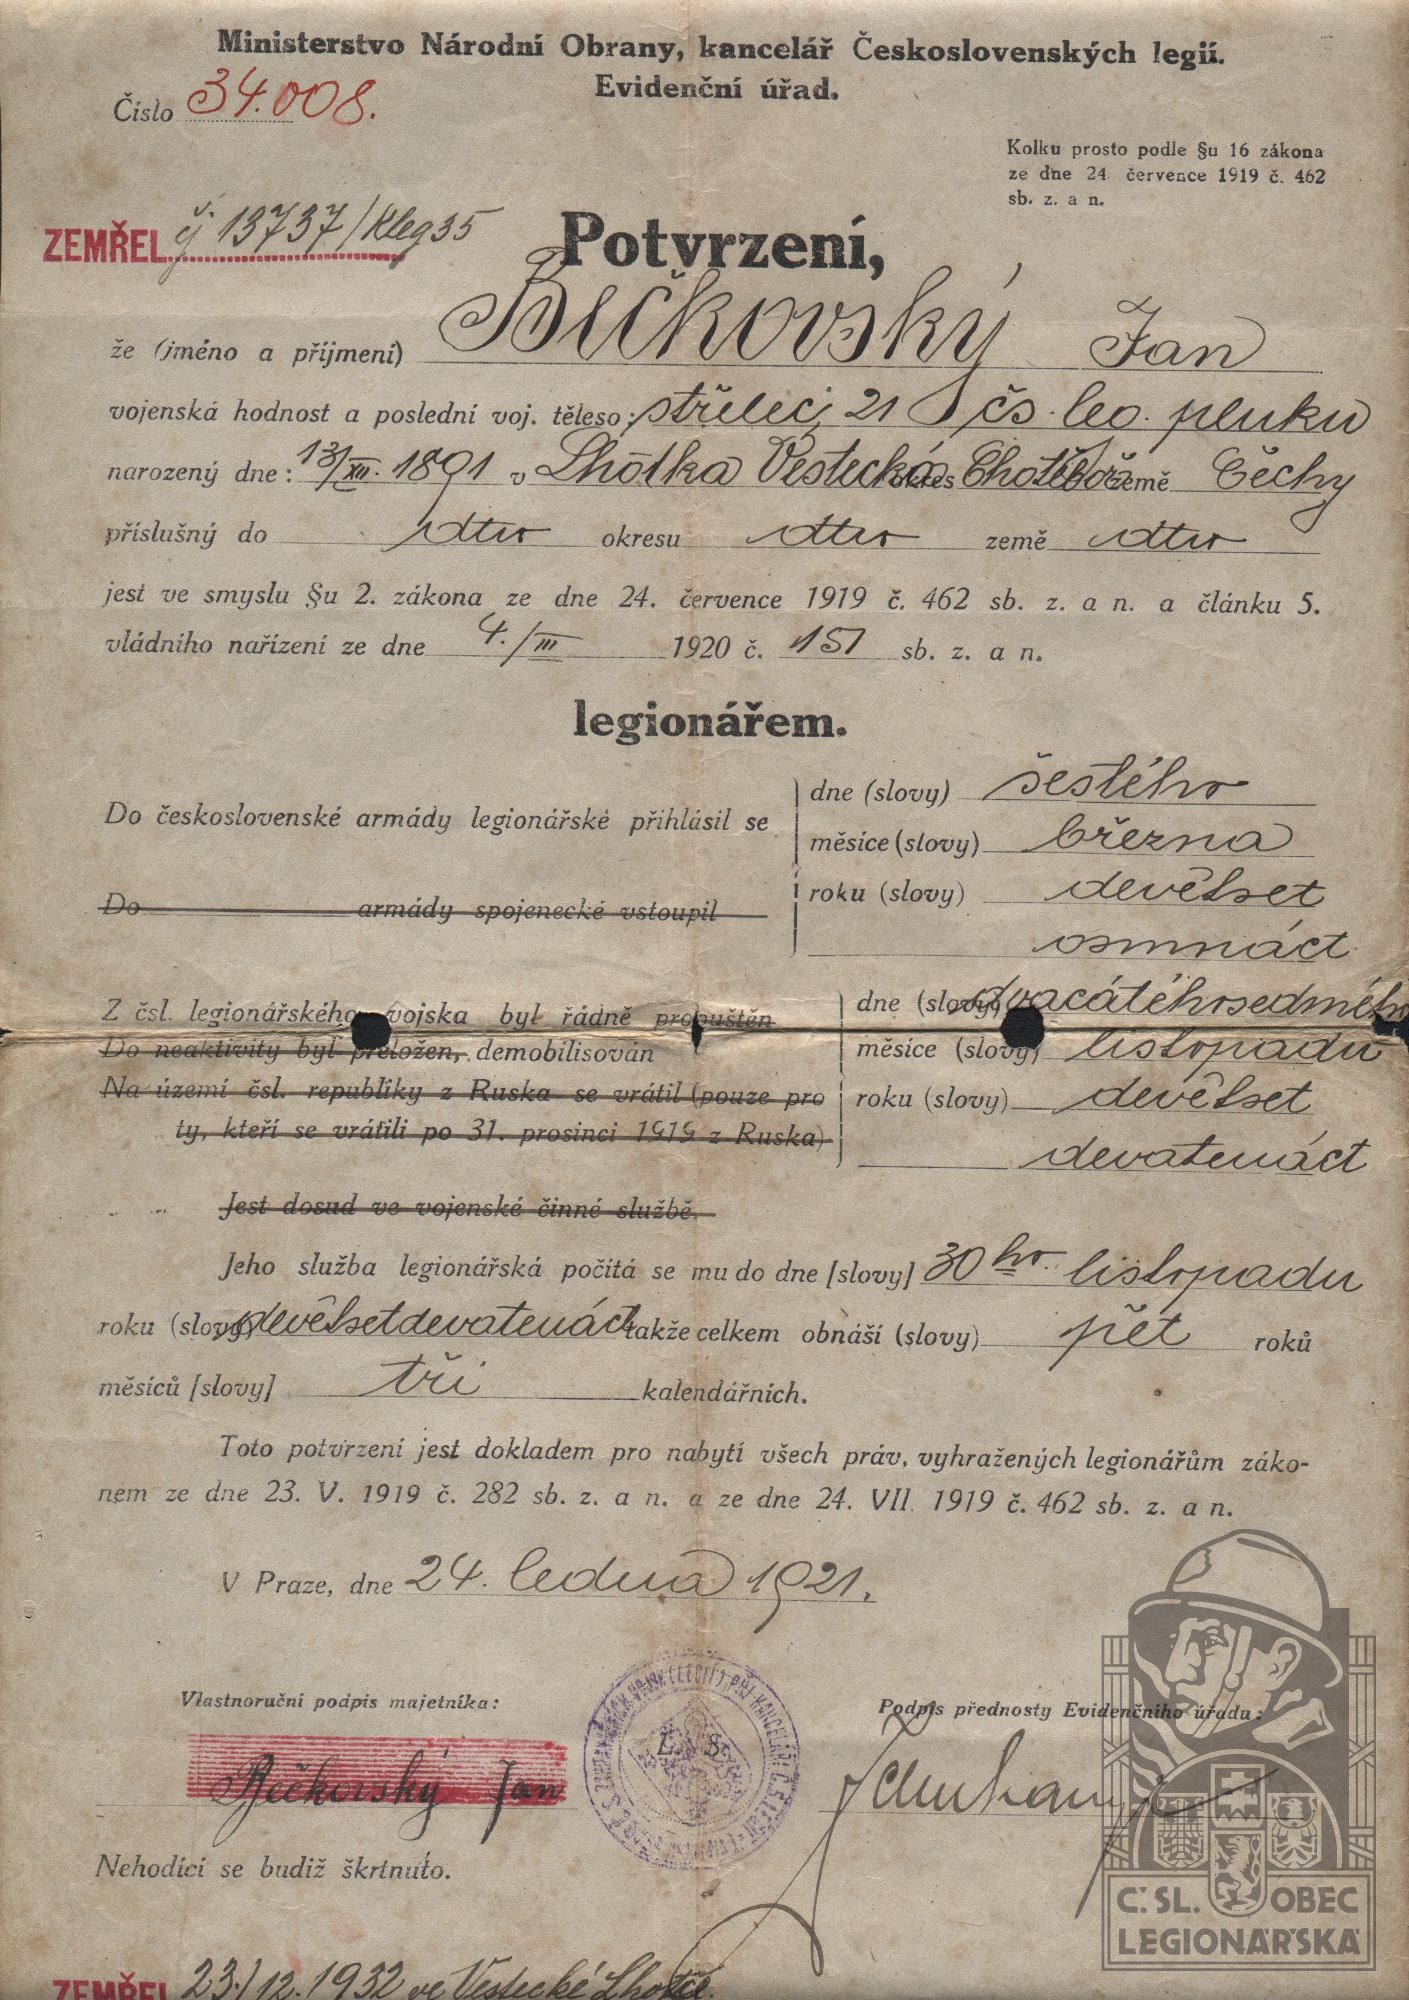 Ministerstvo Národní Obrany, kancelář Československých legií.
Evidenční úřad.
Číslo 34.008.
Kolku prosto podle §u 16 zákona
ze dne 24. července 1919 č. 462
sb. z. a n.
ZEMŘEL čj 13737/Kleg35
Potvrzení,
že (jméno a příjmení) Bečkovský Jan
vojenská hodnost a poslední voj. těleso: střelec, 21 čs. leg. pluku
narozený dne: 13/XII. 1891 v Lhotka Vestecká okres Chotěboř země Čechy
příslušný do dtto okresu dtto země dtto
jest ve smyslu §u 2. zákona ze dne 24. července 1919 č. 462 sb. z. a n. a článku 5.
vládního nařízení ze dne 4./III 1920 č. 151 sb. z. a n.
legionářem.
Do československé armády legionářské přihlásil se
Do armády spojenecké vstoupil
dne (slovy) šestého
měsíce (slovy) března
roku (slovy) devětset
osmnáct
Z čsl. legionářského vojska byl řádně propuštěn
Do neaktivity byl přeložen, demobilisován
Na území čsl. republiky z Ruska se vrátil (pouze pro
ty, kteří se vrátili po 31. prosinci 1919 z Ruska)
dne (slovy) dvacátéhosedmého
měsíce (slovy) listopadu
roku (slovy) devětset
devatenáct
Jest dosud ve vojenské činné službě.
Jeho služba legionářská počítá se mu do dne [slovy] 30ho listopadu
roku (slovy) devětsetdevatenáct takže celkem obnáší (slovy) pět roků
měsíců [slovy] tři kalendářních.
Toto potvrzení jest dokladem pro nabytí všech práv, vyhražených legionářům záko-
nem ze dne 23. V. 1919 č. 282 sb. z. a n. a ze dne 24. VII. 1919 č. 462 sb. z. a n.
V Praze, dne 24. ledna 1921.
Vlastnoruční podpis majetníka:
Podpis přednosty Evidenčního úřadu:
L. S.
Bečkovský Jan
Nehodící se budiž škrtnuto.
Č.SL. OBEC
LEGIONÁŘSKÁ
ZEMŘEL 23./12. 1932 ve Vestecké Lhotce.